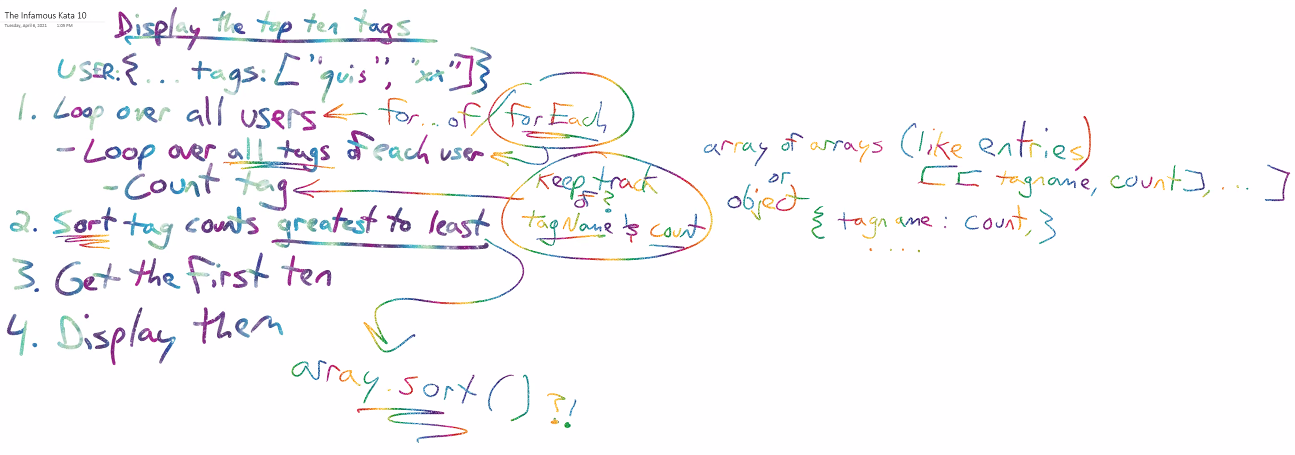 The Infamous Kata 10
Tuesday, April 6, 2021 1:05 PM
Display the top ten tags
USER:{... tags: ["quis", "xx"]}
1. Loop over all users ← for... of / forEach
- Loop over all tags of each user
- Count tag
Keep track
of?
tagName & count
2. Sort tag counts greatest to least
3. Get the first ten
4. Display them
array.sort() ?!
array of arrays (like entries)
[[ tagname, count], ... ]
or
object
{ tagname : count, }
....